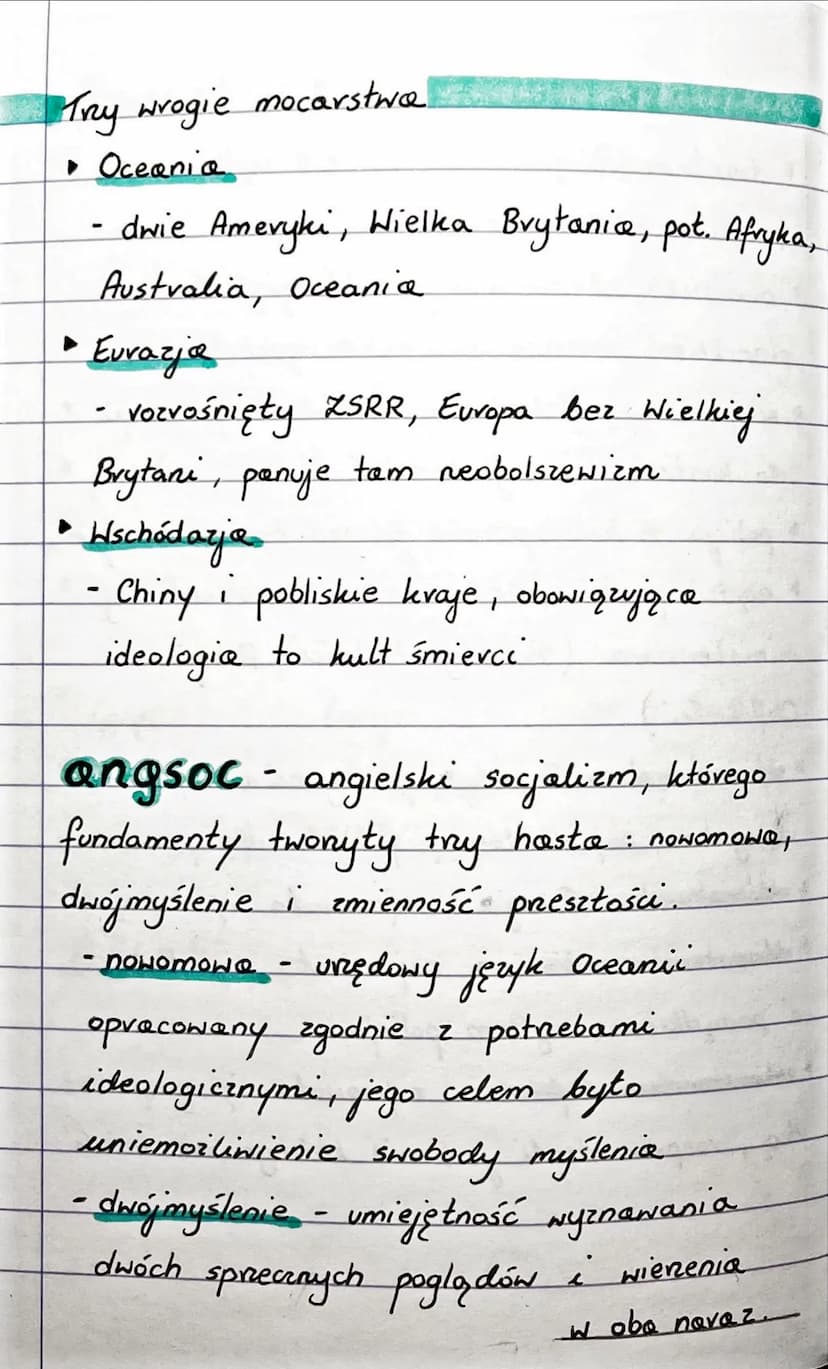 Trzy wrogie mocarstwa
▸ Oceania
- dwie Ameryki, Wielka Brytania, poł. Afryka,
Australia, Oceania
▸ Eurazja
- rozrośnięty ZSRR, Europa bez Wielkiej
Brytani, panuje tam neobolszewizm
▸ Wschódazja
- Chiny i pobliskie kraje, obowiązująca
ideologia to kult śmierci
angsoc - angielski socjalizm, którego
fundamenty tworzyły trzy hasła : nowomowa,
dwójmyślenie i zmienność przeszłości.
- nowomowa - urzędowy język Oceanii
opracowany zgodnie z potrzebami
ideologicznymi, jego celem było
uniemożliwienie swobody myślenia
- dwójmyślenie - umiejętność wyznawania
dwóch sprzecznych poglądów i wierzenia
w oba naraz.